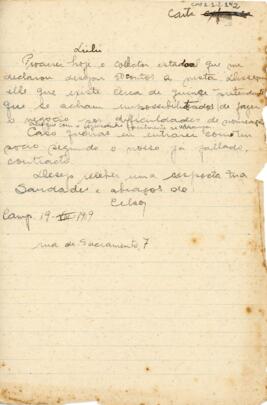 Carta
Lulú
Procurei hoje o collector estadoal que me
declarou desejar 50 contos a mata. Disse
elle que existe cerca de quinze
que se acham impossibilitados de fazer
o negocio por difficuldades de
Caso queiras eu entrarei com um
socio segundo o nosso já fallado,
contracto.
Desejo receber uma resposta tua
Saudades e abraços do
Celso
Camp. 19-VII-1919
rua de Sacramento, 7